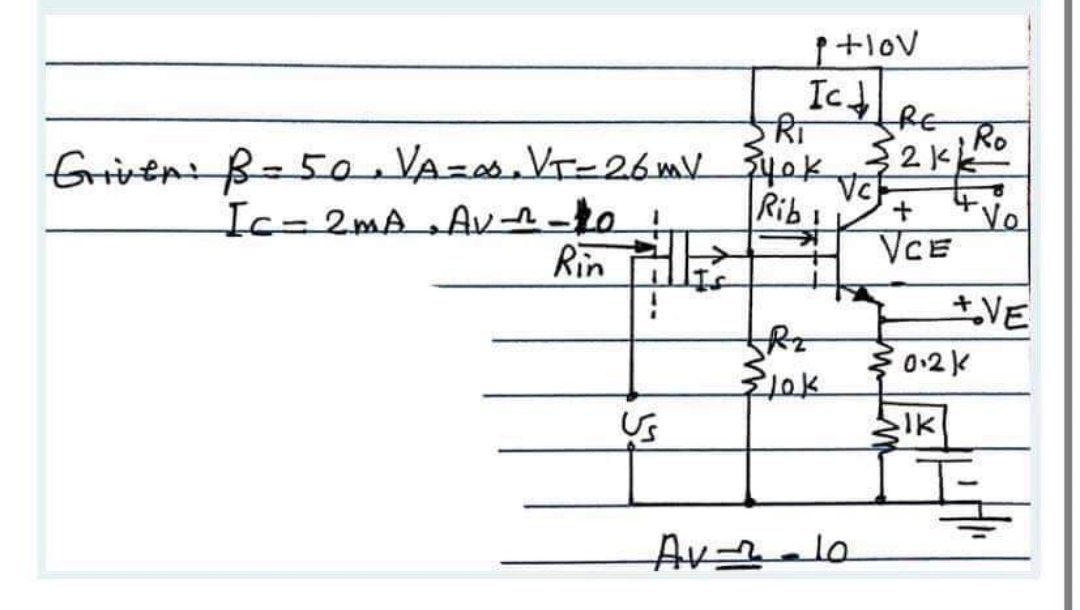 +10V
Ic
R1
40k
RC
2k
Ro
Given: β = 50, VA = ∞, VT = 26mV
Vc
Ic = 2mA, AV ≃ -10
Rib
+
+
Vo
Rin
Is
VCE
-
+
VE
R2
10k
0.2k
1k
Us
-
AV ≃ -10